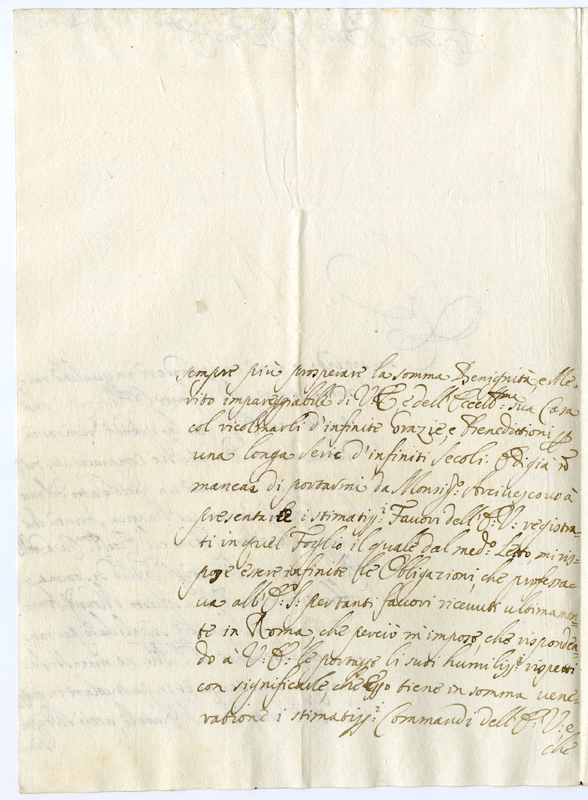 sempre più prosperare la somma Benignità, e Me-
rito impareggiabile di V: E: e dell'Eccell:ma sua Casa
col ricolmarli d'infinite Grazie, e Benedittioni p
una longa serie d'infiniti secoli. Già nō
mancai di portarmi da Monsig:r Arcivescovo à
presentarle i stimatiss:i Favori dell'E: V: registra-
ti in quel Foglio il quale dal med:o Letto, mi ris-
pose essere infinite le Obligazioni, che professa-
va all'E: S: per tanti favori ricevuti ultimamen-
te in Roma, che perciò m'impose, che risponden-
do à V: E: le portasse li suoi humiliss:i rispetti
con significarle, che Esso tiene in somma vene-
ratione i stimatiss:i Commandi dell'E: V: e
che